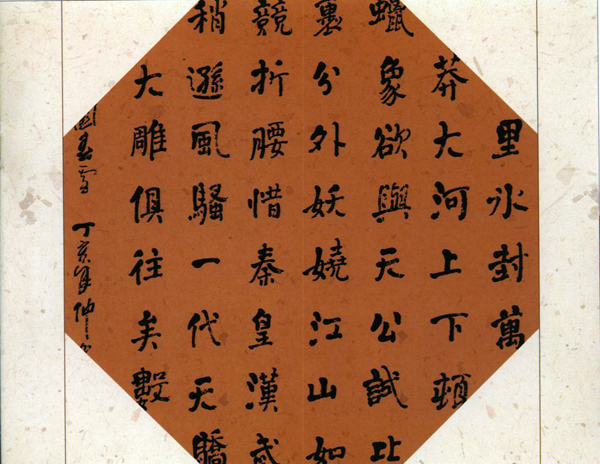 里氷封萬
莽大河上下頓
蠟象欲與天公試比
裹分外妖嬈江山如
競折腰惜秦皇漢武
稍遜風騷一代天驕
大雕俱往矣數
園春雪 丁亥年仲